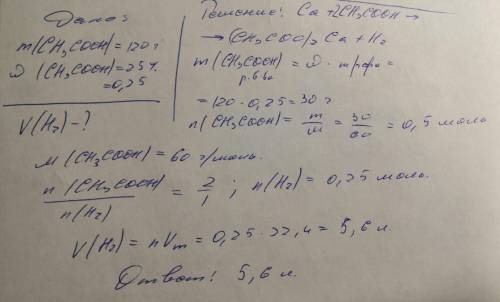 Дано:
m(CH₃COOH)=120г
ω (CH₃COOH)=25%
=0,25
V(H₂)-?
Решение: Ca+2CH₃COOH→
→(CH₃COO)₂Ca+H₂
m(CH₃COOH)=ω·mр-ра=
р.в-ва
=120·0,25=30г
n(CH₃COOH)=m/M=30/60=0,5 моль
M(CH₃COOH)=60 г/моль.
n(CH₃COOH)/n(H₂)=2/1; n(H₂)=0,25 моль.
V(H₂)=nVm=0,25·22,4=5,6л.
Ответ: 5,6л.